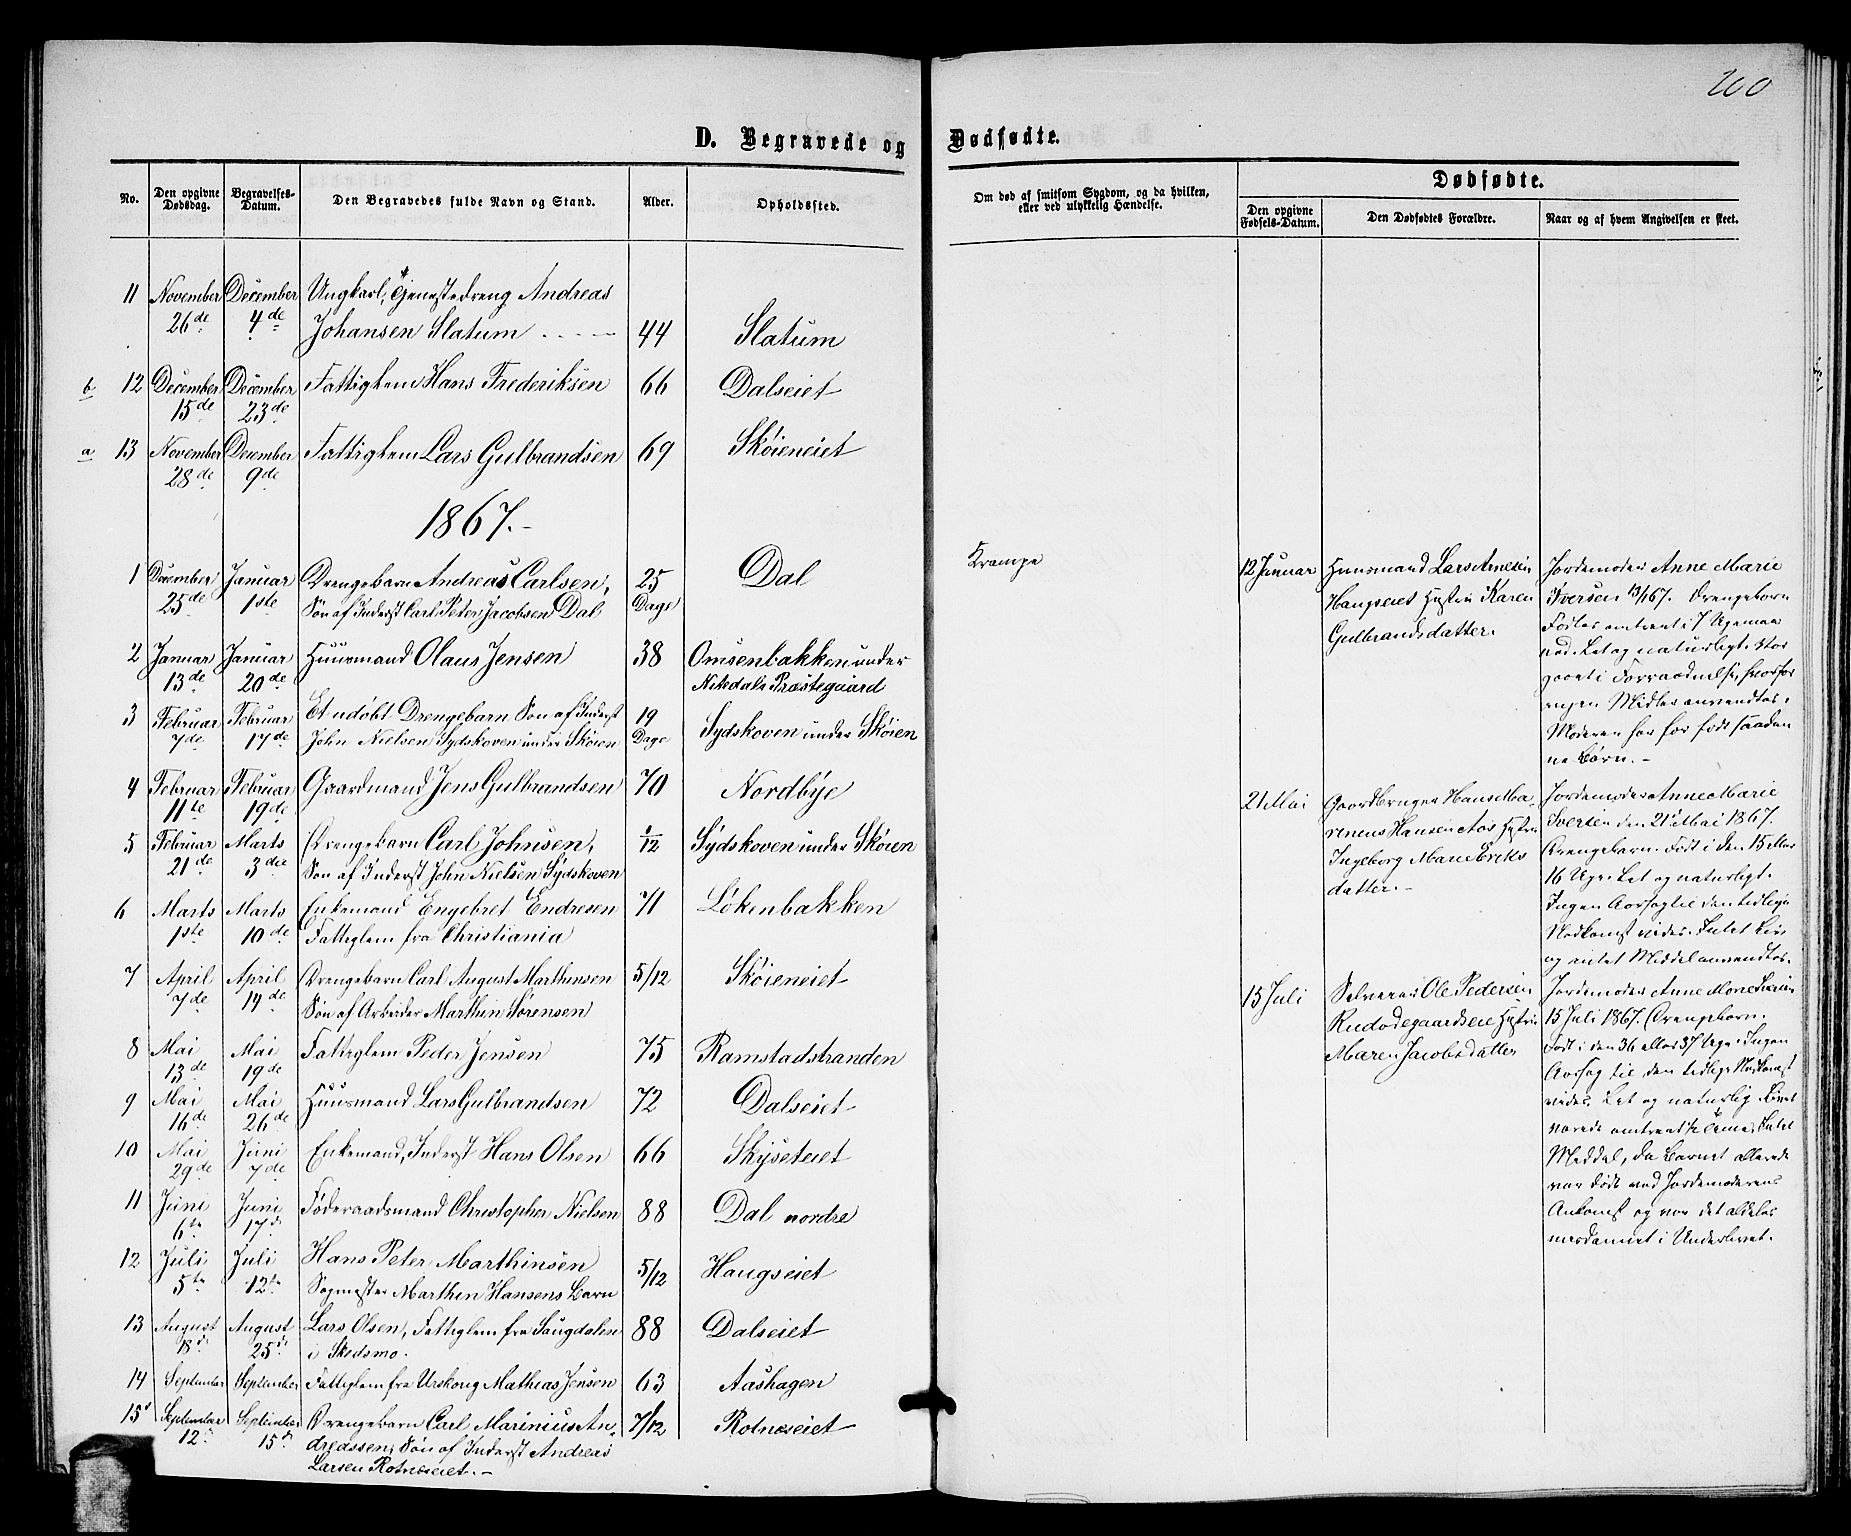 200
D. Begravede og Dødfødte.
No.
Den opgivne Dødsdag.
Begravelses-Datum.
Den Begravedes fulde Navn og Stand.
Alder.
Opholdssted.
Om død af smitsom Sygdom, og da hvilken, eller ved ulykkelig Hændelse.
Dødfødte.
Den opgivne Fødsels-Datum.
Den Dødfødtes Forældre.
Naar og af hvem Angivelsen er skeet.
11 November December Ungkarl, Andreas
26de 4de Johansen Slatum 44 Slatum
b 12 December December Fattiglem Hans Frederiksen 66 Dalseiet
15de 23de
a 13 November December Fattiglem Lars Gulbrandsen 69 Skøieneiet
28de 9de
1867.
1 December Januar Drengebarn Andreas Carlsen, 25 Dal
25de 1ste Søn af Inderst Carl Peter Jacobsen Dal Dage
2 Januar Januar Huusmand Olaus Jensen 38 Omsenbakken under
13de 20de Nitedals Præstegaard
3 Februar Februar Et udøbt Drengebarn Søn af Inderst 19 Sydskoven under Skøien
7de 17de John Nielsen Sydskoven under Skøien Dage
4 Februar Februar Gaardmand Jens Gulbrandsen 70 Nordbye
11te 19de
5 Februar Marts Drengebarn Carl Johnsen, 1/12 Sydskoven under Skøien
21de 3die Søn af Inderst John Nielsen Sydskoven
6 Marts Marts Enkemand Engebret Endresen 71 Løkenbakken
1ste 10de Fattiglem fra Christiania
7 April April Drengebarn Carl August Marthinsen 5/12 Skøieneiet
7de 14de Søn af Arbeider Marthin Sørensen
8 Mai Mai Fattiglem Peder Jensen 75 Ramstadstranden
13de 19de
9 Mai Mai Huusmand Lars Gulbrandsen 72 Dalseiet
16de 26de
10 Mai Juni Enkemand, Inderst Hans Olsen 66 Skyseteiet
29de 7de
11 Juni Juni Føderaadsmand Christopher Nielsen 88 Dal nordre
6te 17de
12 Juli Juli Hans Peter Marthinsen 5/12 Haugseiet
5te 12te Sagmester Marthin Hansens Barn
13 August August Lars Olsen, Fattiglem fra Saugdalen 88 Dalseiet
18de 25de i Skedsmo.
14 September September Fattiglem fra Urskoug Mathias Jensen 63 Aashagen
15 September September Drengebarn Carl Marinius An- 7/12 Rotneseiet
12 15de dreassen, Søn af Inderst Andreas
Larsen Rotneseiet.-
Krampe
12 Januar
Huusmand Lars Arnesen
Haugseiet Hustru Karen
Gulbrandsdatter.
Jordemoder Anne Marie
Iversen 13/1 67. Drengebarn
Fødtes omtrent 7 Uger
Let og naturligt. Stor
gaaet i Forraadnelse, hvorfor
ingen Midler anvendtes.
Moderen har før født saadan
ne Børn.-
21 Mai
Gaardbruger Hans Ma-
renius Hansen Aas Hustru
Ingeborg Marie Eriks
datter.-
Jordemoder Anne Marie
Iversen den 21 Mai 1867.
Drengebarn. Født i den 15 eller
16 Uge. Let og naturligt.
Ingen Aarsag til den tidlige
Nedkomst vides. Intet Liv
og intet Middel anvendtes.
15 Juli
Selveier Ole Pedersen
Rudodegaardseie Hustru
Maren Jacobsdatter
Jordemoder Anne Marie Iversen
15 Juli 1867. Drengebarn.
Født i den 36 eller 37 Uge. Ingen
Aarsag til den tidlige Nedkomst
vides. Let og naturlig. Livet
varede omtrent 1/2 Time. Intet
Middel, da Barnet allerede
var født ved Jordemoderens
Ankomst og var det aldeles
misdannet i Underlivet.